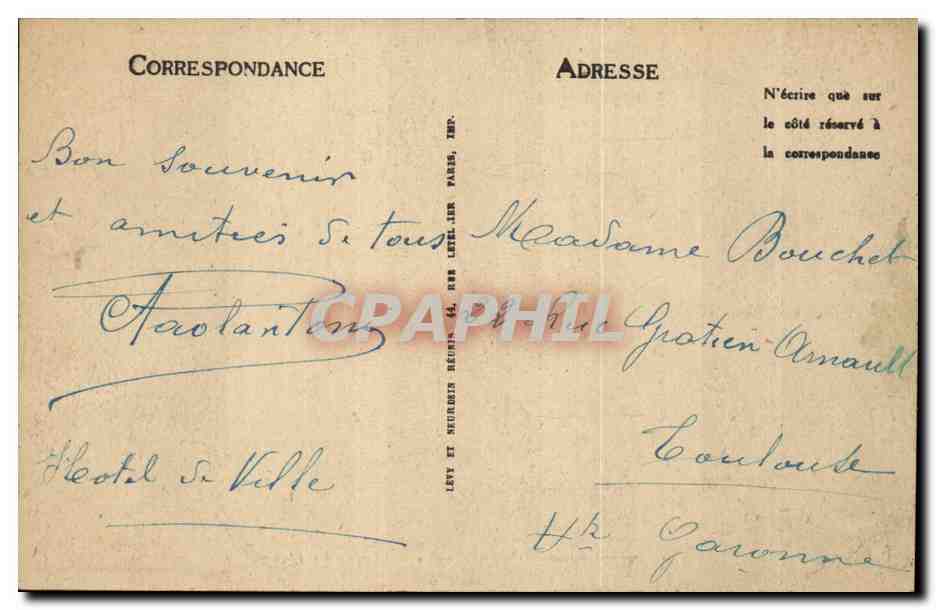 CORRESPONDANCE
Bon souvenir
et amities de tous
Paolantoni
Hotel de Ville
LÉVY ET NEURDEIN RÉUNIS 44, RUE LETELLIER PARIS, IMP.
ADRESSE
N'écrire que sur
le côté réservé à
la correspondance
Madame Bouchet
22 Rue Gratien-Arnault
Toulouse
Hte Garonne
CPARPHIL